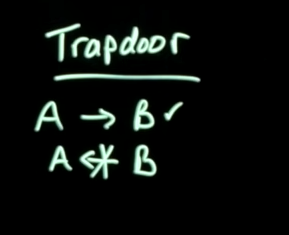 Trapdoor
A → B ✓
A <* B